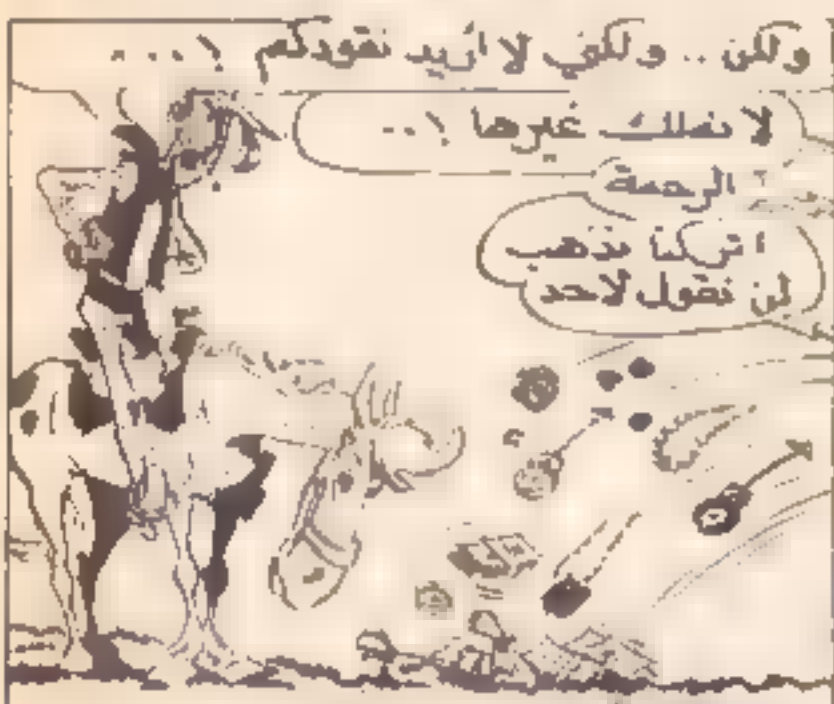 ولكن .. ولكني لا أريد نقودكم !...
لا نملك غيرها !..
الرحمة
اتركنا نذهب
لن نقول لأحد